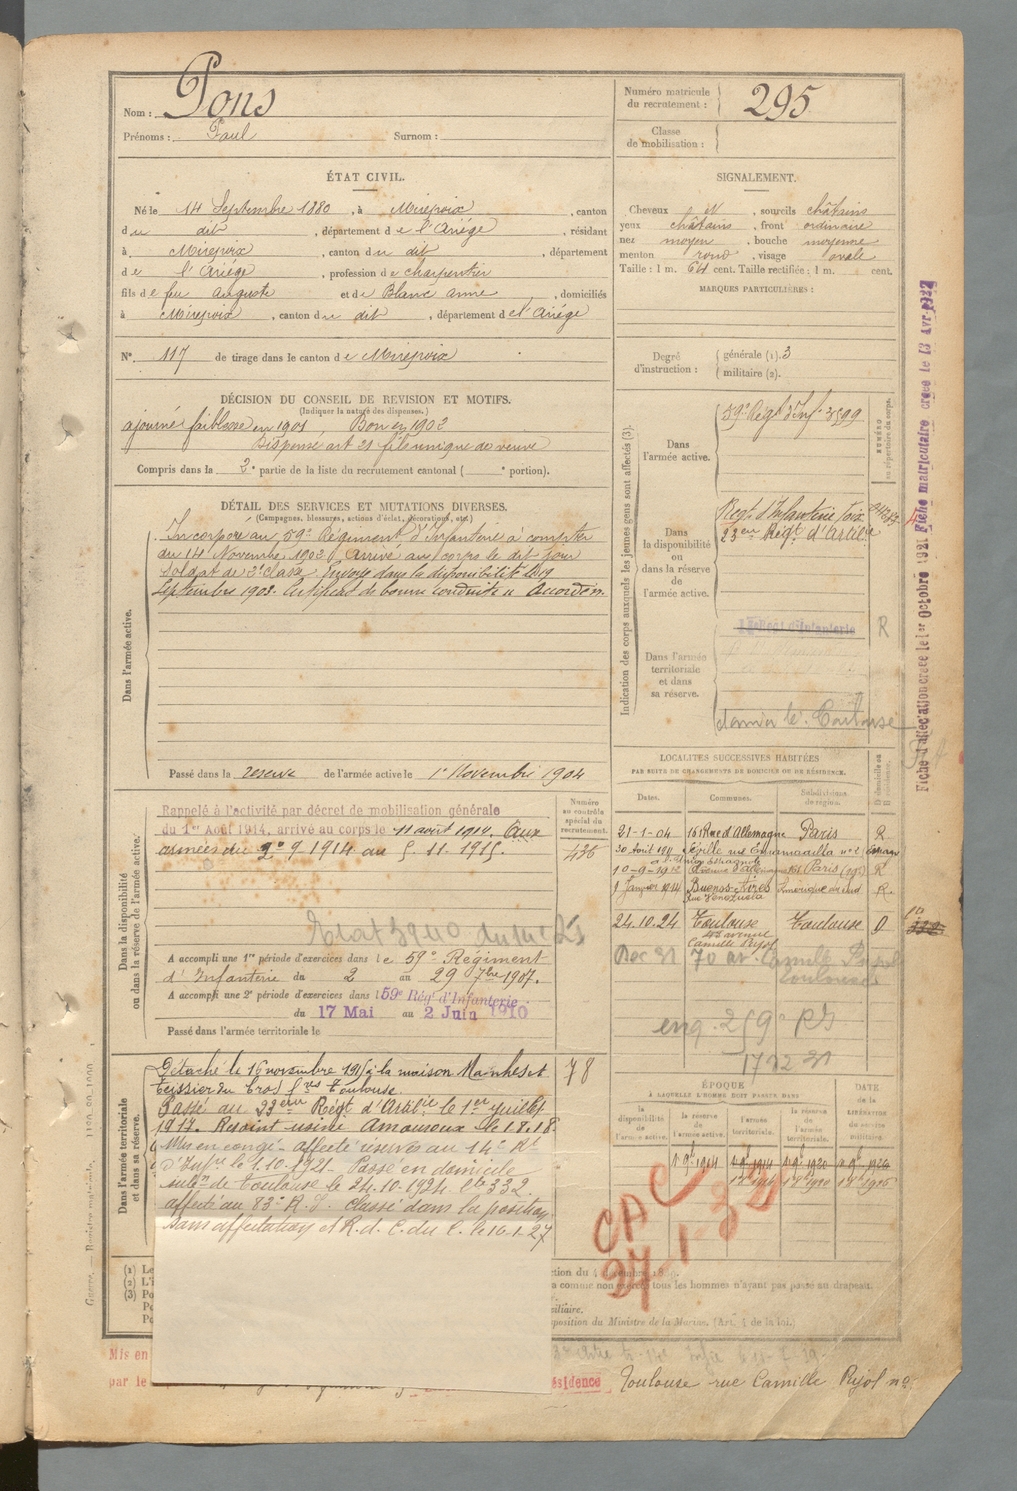 Nom : Pons
Prénoms : Paul Surnom :
Numéro matricule du recrutement : 295
Classe de mobilisation :
ÉTAT CIVIL.
Né le 14 Septembre 1880, à Mirepoix, canton
du dit, département de l'Ariège, résidant
à Mirepoix, canton du dit, département
de l'Ariége, profession de charpentier
fils de feu Auguste et de Blanc Anne, domiciliés
à Mirepoix, canton du dit, département de l'Ariége
N° 117 de tirage dans le canton de Mirepoix
SIGNALEMENT.
Cheveux N, sourcils châtains
yeux châtains, front ordinaire
nez moyen, bouche moyenne
menton rond, visage ovale
Taille : 1 m. 64 cent. Taille rectifiée : 1 m. cent.
MARQUES PARTICULIÈRES :
Degré d'instruction : générale (1). 3
militaire (2).
DÉCISION DU CONSEIL DE REVISION ET MOTIFS.
(Indiquer la nature des dispenses.)
ajourné faiblesse en 1901, Bon en 1902
Dispensé art 21 fils unique de veuve
Compris dans la 2e partie de la liste du recrutement cantonal ( e portion).
DÉTAIL DES SERVICES ET MUTATIONS DIVERSES.
(Campagnes, blessures, actions d'éclat, décorations, etc.)
Dans l'armée active.
Incorporé au 59e Régiment d'Infanterie à compter
du 14 Novembre 1902. Arrivé au corps le dit jour
Soldat de 2e classe. Envoyé dans la disponibilité le 19
Septembre 1903. Certificat de bonne conduite "Accordé".
Passé dans la réserve de l'armée active le 1er Novembre 1904
Indication des corps auxquels les jeunes gens sont affectés (3).
NUMÉRO au répertoire du corps.
Dans l'armée active.
59e Régt d'Inf. 3599
Dans la disponibilité ou dans la réserve de l'armée active.
Régt d'Infanterie Foix
23eme Régt d'Artie
Dans l'armée territoriale et dans sa réserve.
d'Infanterie R
Toulouse
Fiche d'affectation créée le 1er Octobre 1921 Fiche matriculaire créée le 13 Avr 1912
Dans la disponibilité ou dans la réserve de l'armée active.
Rappelé à l'activité par décret de mobilisation générale
du 1er Août 1914, arrivé au corps le 11 août 1914. Aux
armées du 9.1914 au 5.11.1915.
Numéro au contrôle spécial du recrutement.
A accompli une 1re période d'exercices dans le 59e Régiment
d'Infanterie du 2 au 29 7bre 1907.
A accompli une 2e période d'exercices dans l 59e Rég' d'Infanterie
du 17 Mai au 2 Juin 1910
Passé dans l'armée territoriale le
LOCALITÉS SUCCESSIVES HABITÉES
PAR SUITE DE CHANGEMENTS DE DOMICILE OU DE RÉSIDENCE.
Dates. Communes. Subdivisions de région. D domicile ou R résidence.
21-1-04 161 Rue d'Allemagne Paris R
30 Août Séville
10-9-1912 Paris (19e) R
1 Janvier 1914 Buenos-Aires Amérique du sud R.
Rue Vénézuela
24.10.24 Toulouse Toulouse D
avenue
Camille Pujol
70 av. Camille Pujol
Toulouse
Dans l'armée territoriale et dans sa réserve.
Détaché le 16 novembre 1915 à la maison Manhes et 78
Teissier du Cros Toulouse
Passé au 23eme Régt d'Artillie le 1er juillet
1917. Rejoint usine Amouroux le 1.8.18
Mis en congé - affecté réserve au 14e Rt
d'Infie le 1.10.1921 - Passé en domicile
subon de Toulouse le 24.10.1924. lte 332.
affecté au 83e R.I. Classé dans la position
sans affectation et R. d. C. du C. le 16-1-27
ÉPOQUE
À LAQUELLE L'HOMME DOIT PASSER DANS
la disponibilité de l'armée active. la réserve de l'armée active. l'armée territoriale. la réserve de l'armée territoriale. DATE DE LA LIBÉRATION DU SERVICE MILITAIRE.
CAC
27 1
(1) Le
(2) L'i
(3) Po
Po
Po
tous les hommes n'ayant pas passé au drapeau.
disposition du Ministre de la Marine. (Art. 4 de la loi.)
Mis en
par le
ésidence Toulouse rue Camille Pujol no